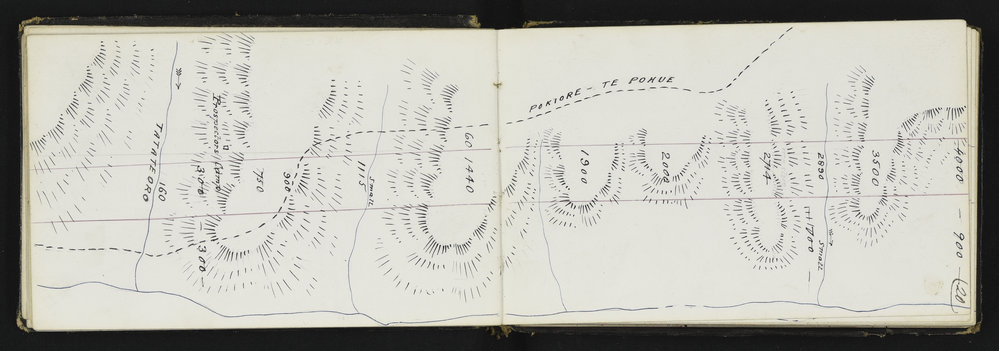 TATATEORO
160
Prospectors Camp
300
300
750
900
1115
small
60 1440
POKIORE - TE POHUE
1900
2000
2774
± 1700 —
2890
small
3500
4000 — 900 — 20